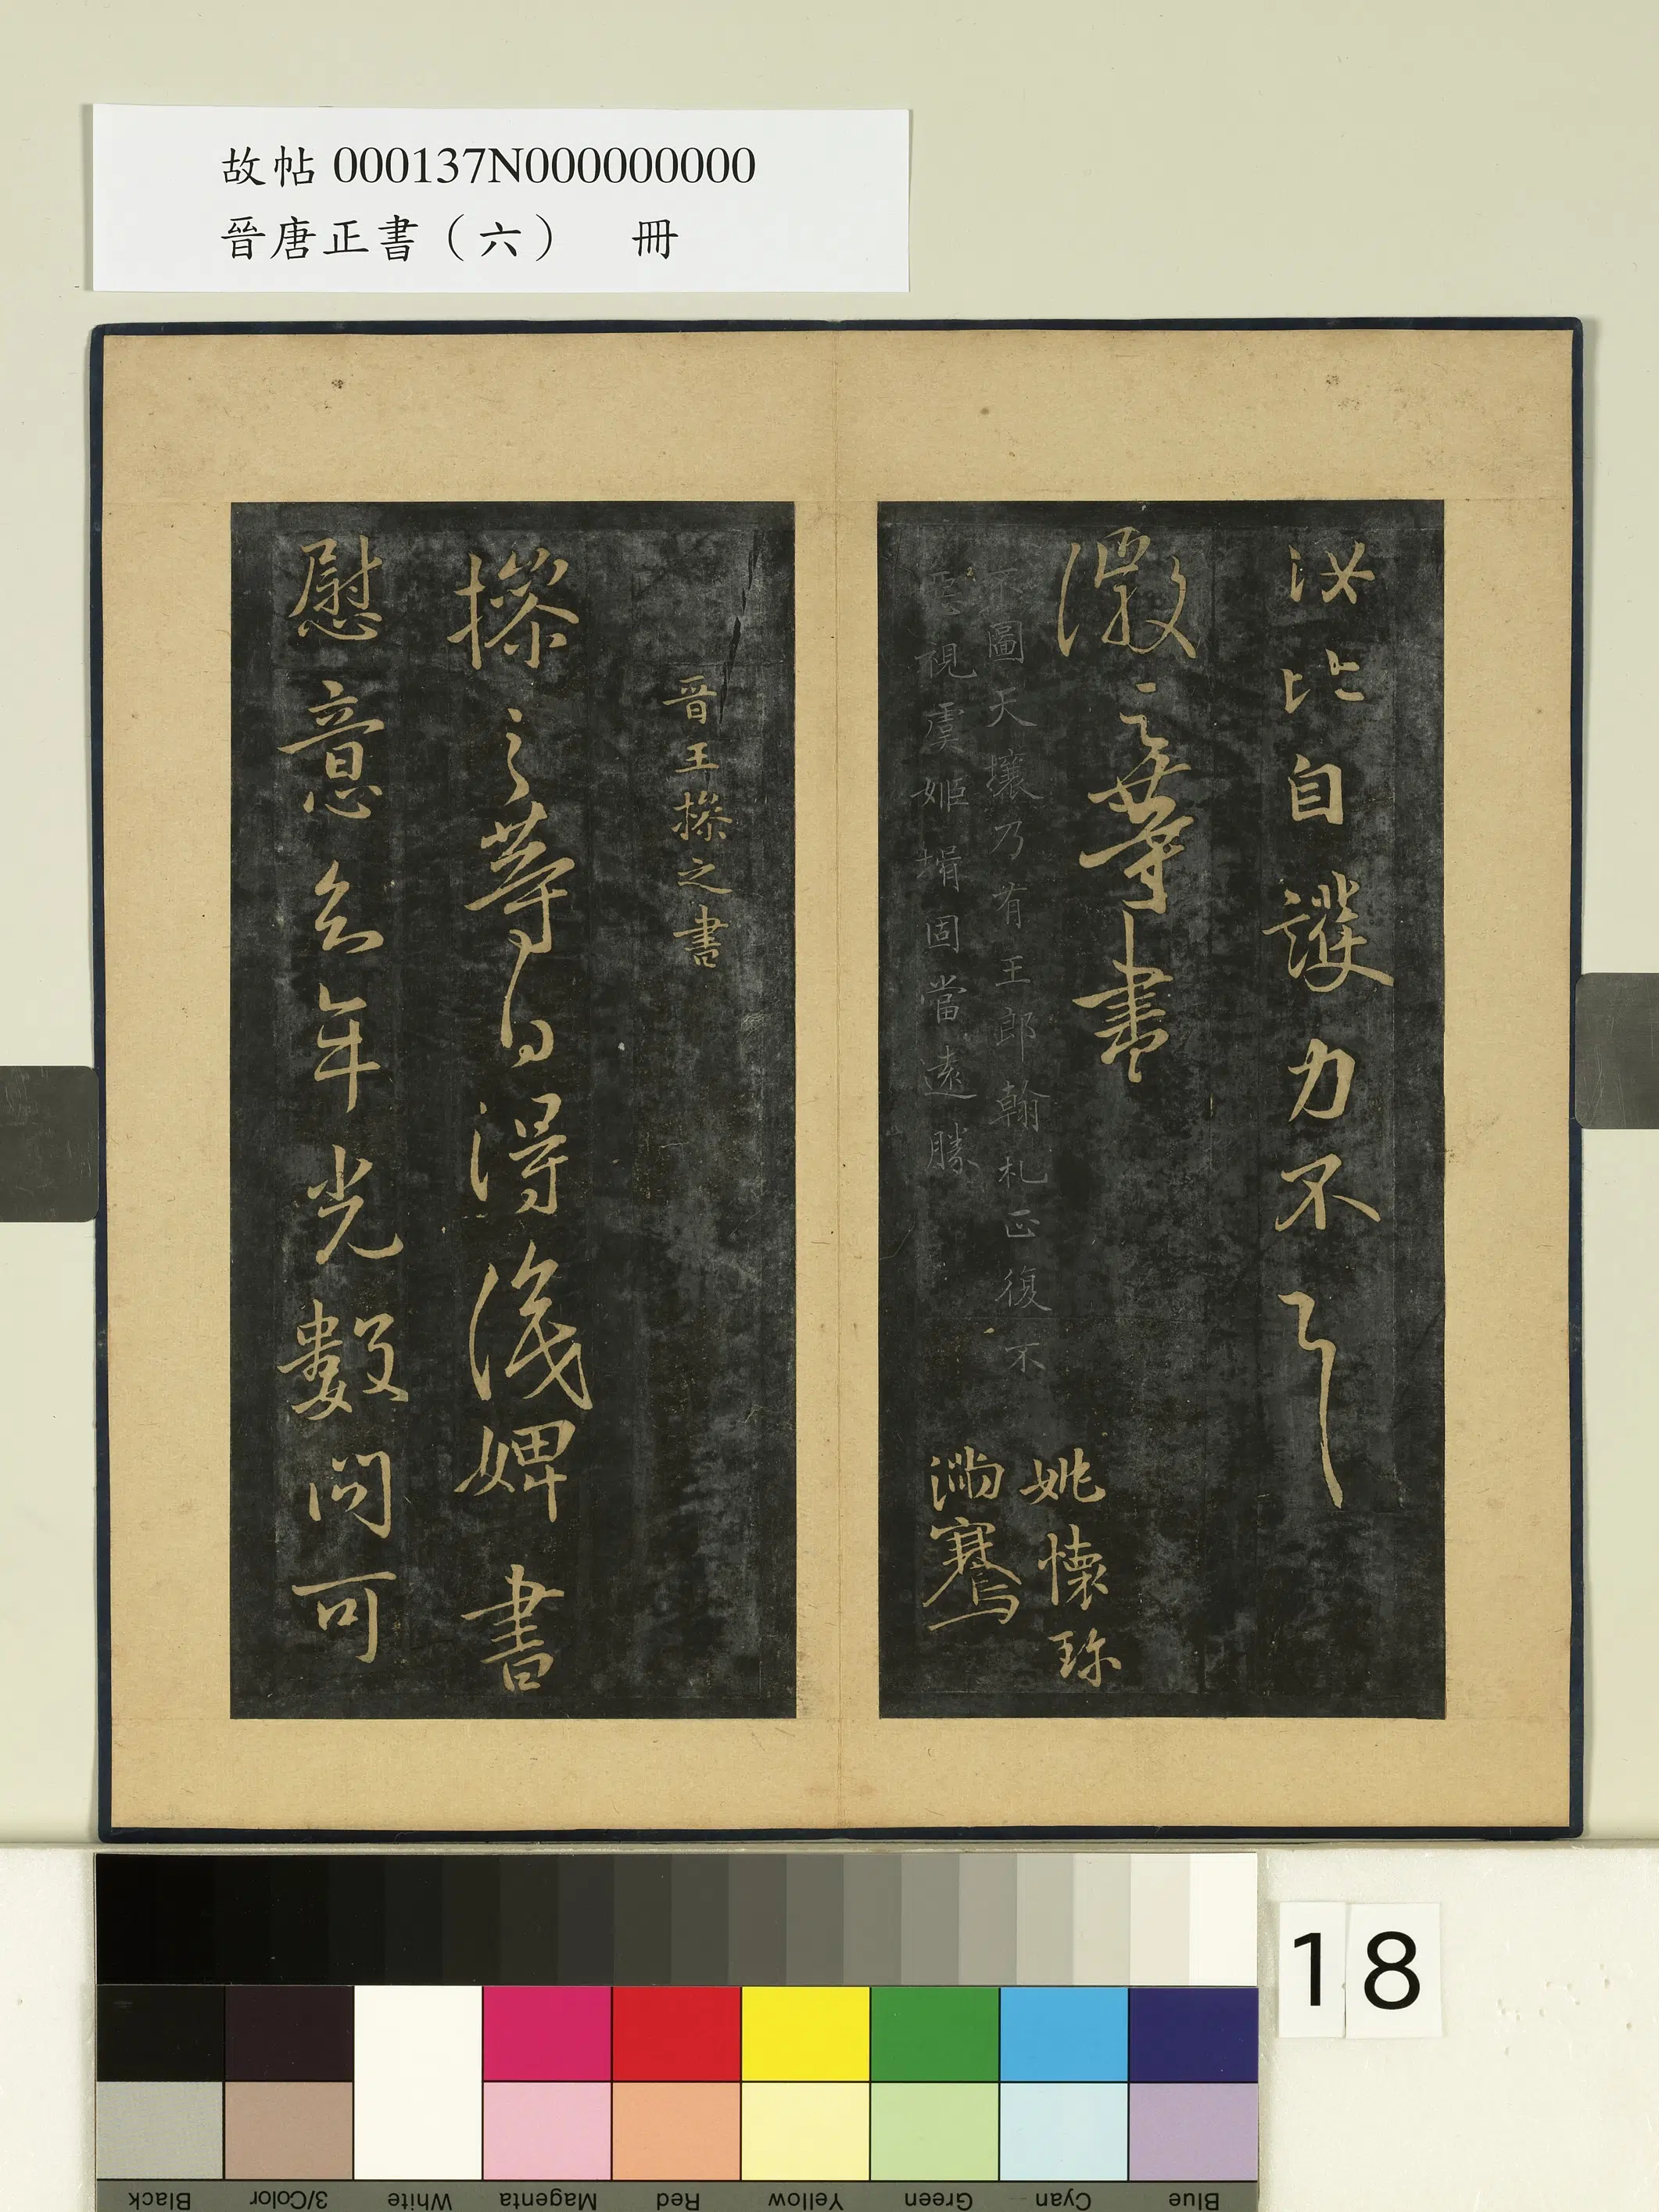 故帖 000137N000000000
晉唐正書（六） 冊
汝比自護力不
凝之等書
不圖天壤乃有王郎翰札正復不
視虞姬壻固當遠勝
姚懷珍
滿騫
晉王操之書
操之等白得識婢書
慰意念年光數問可
18
Black
3/Color
White
Magenta
Red
Yellow
Green
Cyan
Blue